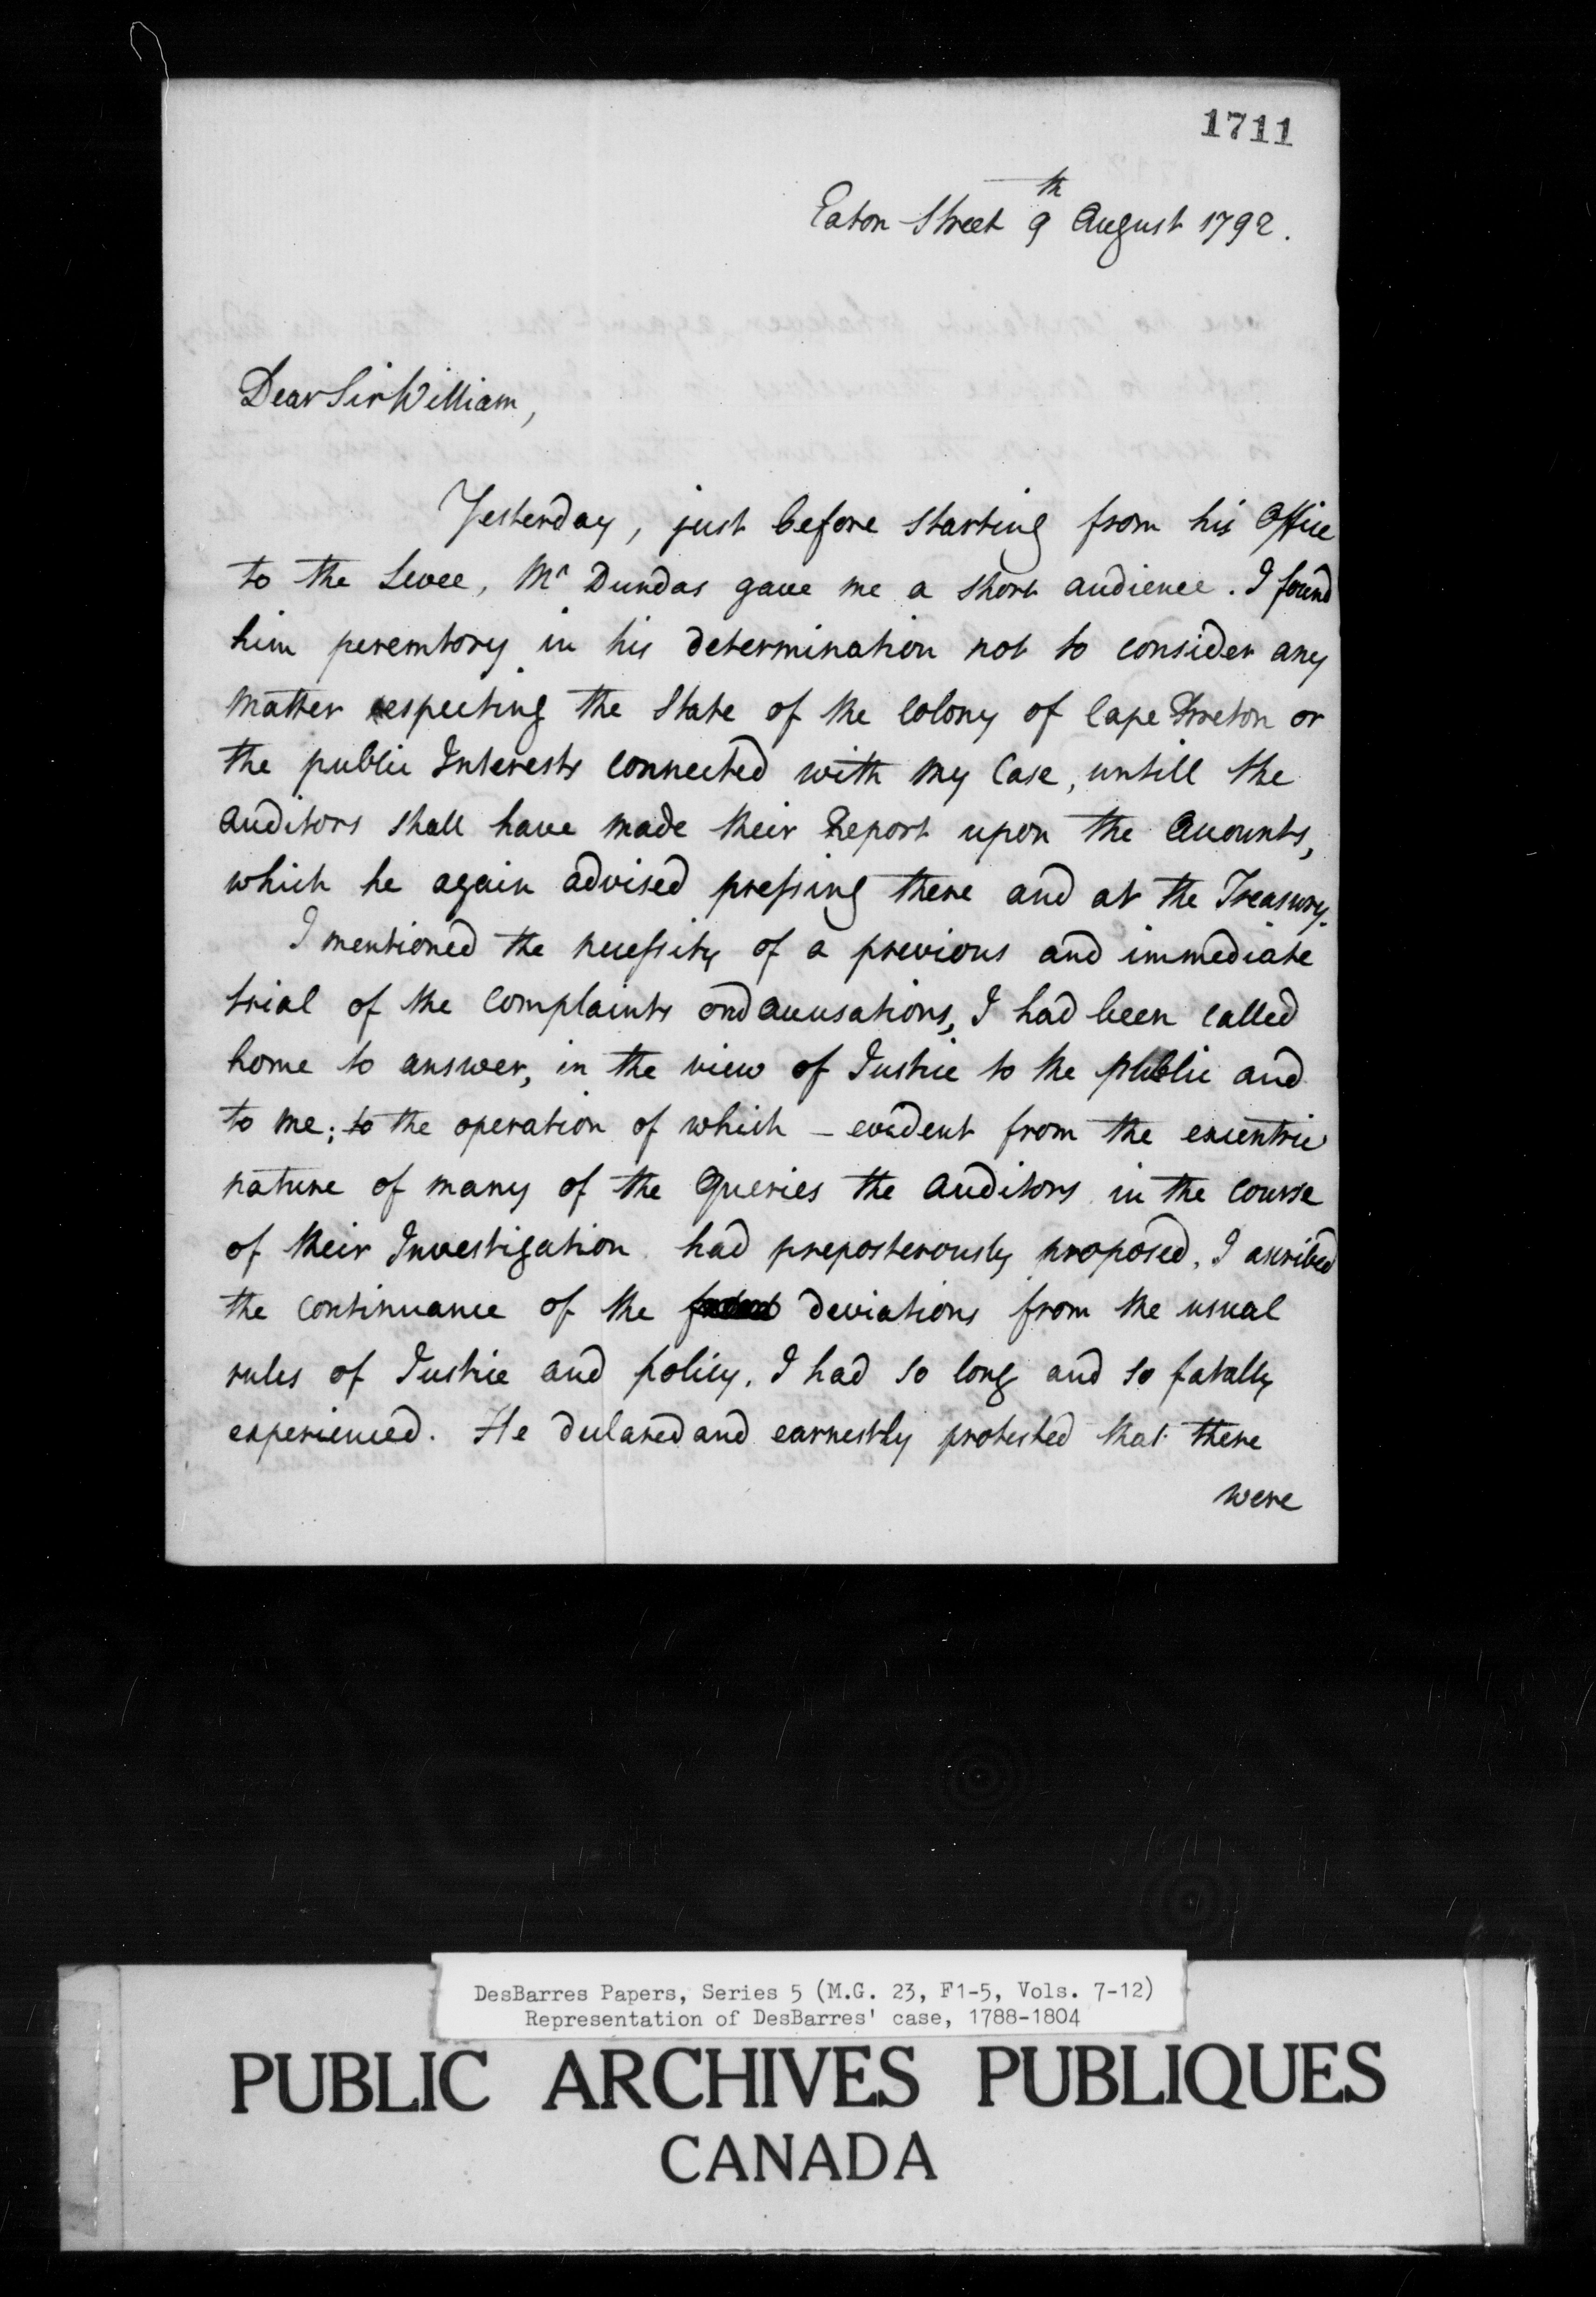 1711
Eaton Street 9th August 1792.
Dear Sir William,
Yesterday, just before starting from his Office
to the Levee, Mr Dundas gave me a short audience. I found
him peremtory in his determination not to consider any
matter respecting the State of the Colony of Cape Breton or
the public Interests connected with my Case, untill the
auditors shall have made their Report upon the Accounts,
which he again advised pressing there and at the Treasury.
I mentioned the necessity of a previous and immediate
trial of the Complaints and accusations, I had been called
home to answer, in the view of Justice to the public and
to me; to the operation of which – evident from the excentric
nature of many of the Queries the Auditors in the course
of their Investigation had preposterously proposed, I ascribed
the continuance of the deviations from the usual
rules of Justice and policy, I had so long and so fatally
experienced. He declared and earnestly protested that there
were
DesBarres Papers, Series 5 (M.G. 23, F1-5, Vols. 7-12)
Representation of DesBarres' case, 1788-1804
PUBLIC ARCHIVES PUBLIQUES
CANADA